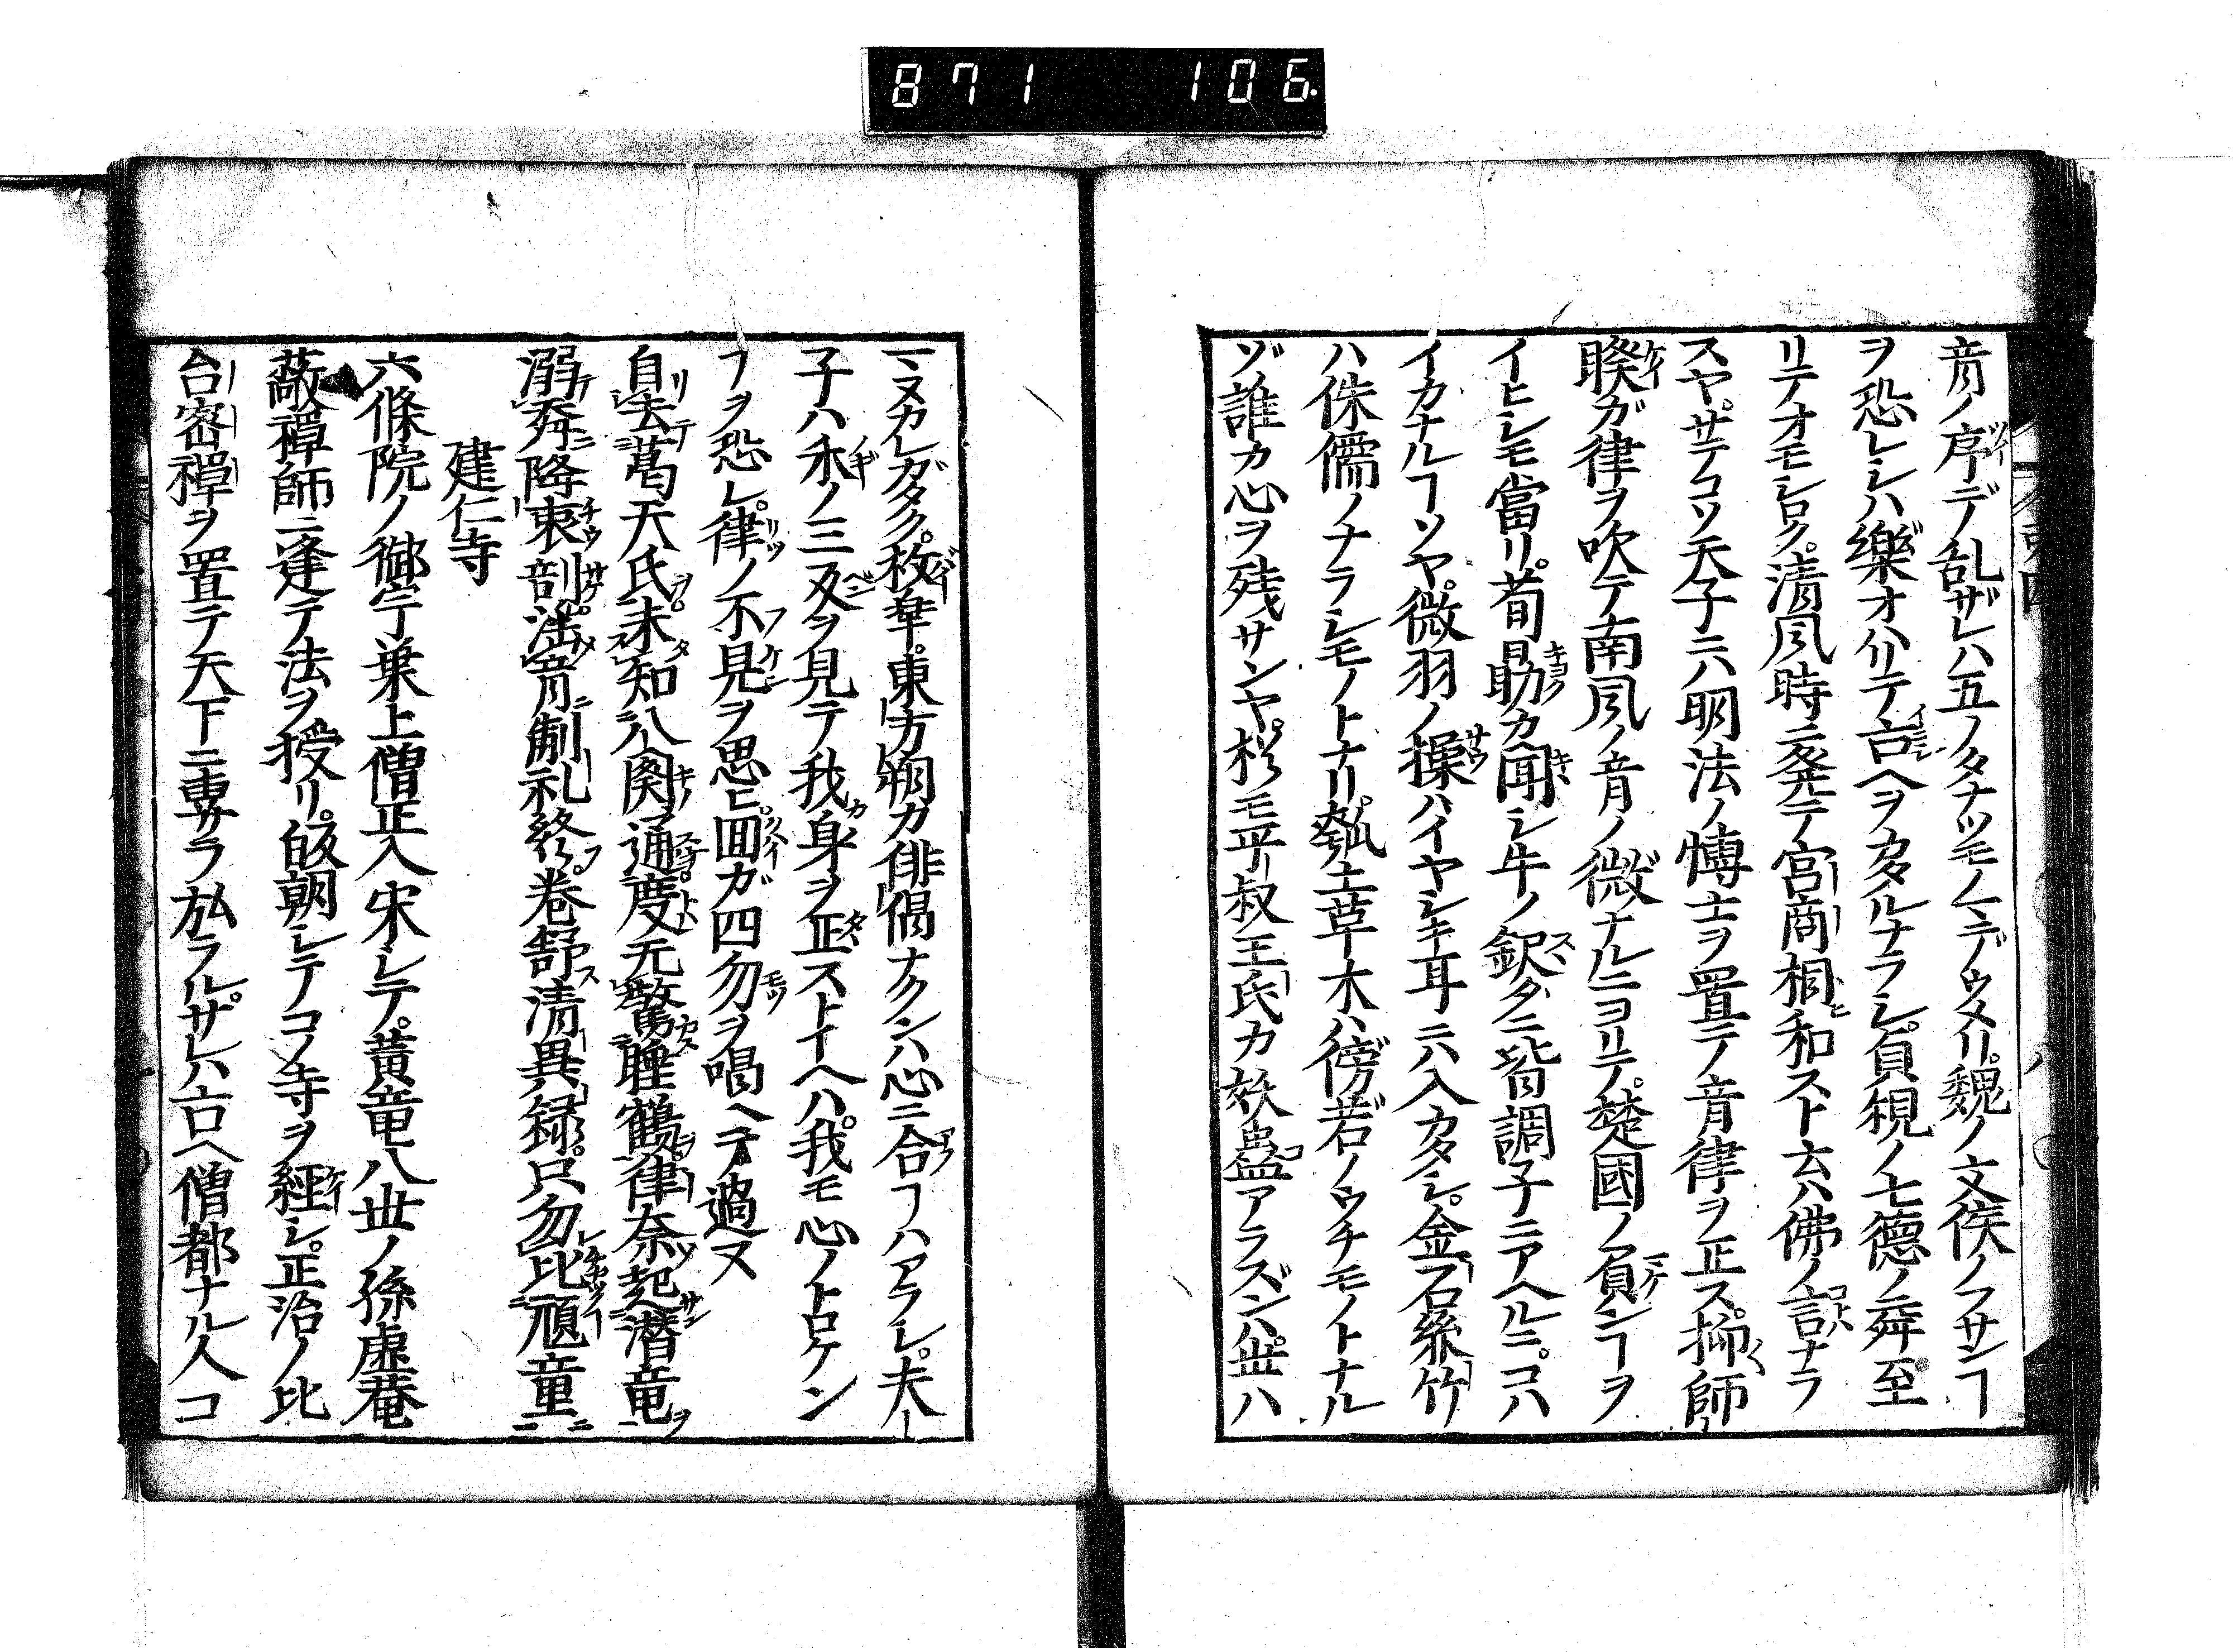 871 106
音ノ序デ乱ザレハ五ノタナツモノヿデウメリ。魏ノ文侯ノフサンヿ
ヲ恐レシハ樂オハリテ古ヘヲカタルナラシ。負規ノ七德ノ舜至
リテオモシロク。清風時ニ発テ宮商相和スト云ハ佛ノ言ナラ
スヤ。サテコソ天子ニハ明法ノ博士ヲ置テノ音律ヲ正ス。
暌ガ律ヲ吹テ南風ノ音ノ微ナルニヨリテ。楚國ノ負ンヿヲ
イヒシモ當リ。荀勗カ聞シ牛ノ鈬ダニ皆調子ニアヘルニ。コハ
イカナルヿソヤ。微羽ノ操ハイヤシキ耳ニハ入カタシ。金石絲竹
ハ侏儒ノナラシモノトナリ。瓠土草木ハ傍若ノウチモノトナル
ゾ誰カ心ヲ残サンヤ。杉モ平叔王氏カ妖蛊アラズンハ。世ハ
マヌカレガタク。枚皐。東方朔カ俳偈ナクンハ心ニ合フハアラシ。夫
子ハ禾ノ三変ヲ見テ我身ヲ正ストイヘハ。我モ心ノトロケン
ヿヲ恐レ。律ノ不見ヲ思ヒ。回ガ四勿ヲ唱ヘテ過ヌ
自去葛天氏未知八闋通度无驚睡鶴律奈起潜竜
溺舜降衷剖法音制礼終卷舒清異録只勿比頑童
建仁寺
六條院ノ御宇葉上僧正入宋シテ。黄竜八世ノ孫虚菴
敞禪師ニ逢テ法ヲ授リ。皈朝シテコノ寺ヲ經シ。正治ノ比
台密禪ヲ置テ天下ニ専サラ弘ラル。サレハ古ヘ僧都ナル人コ